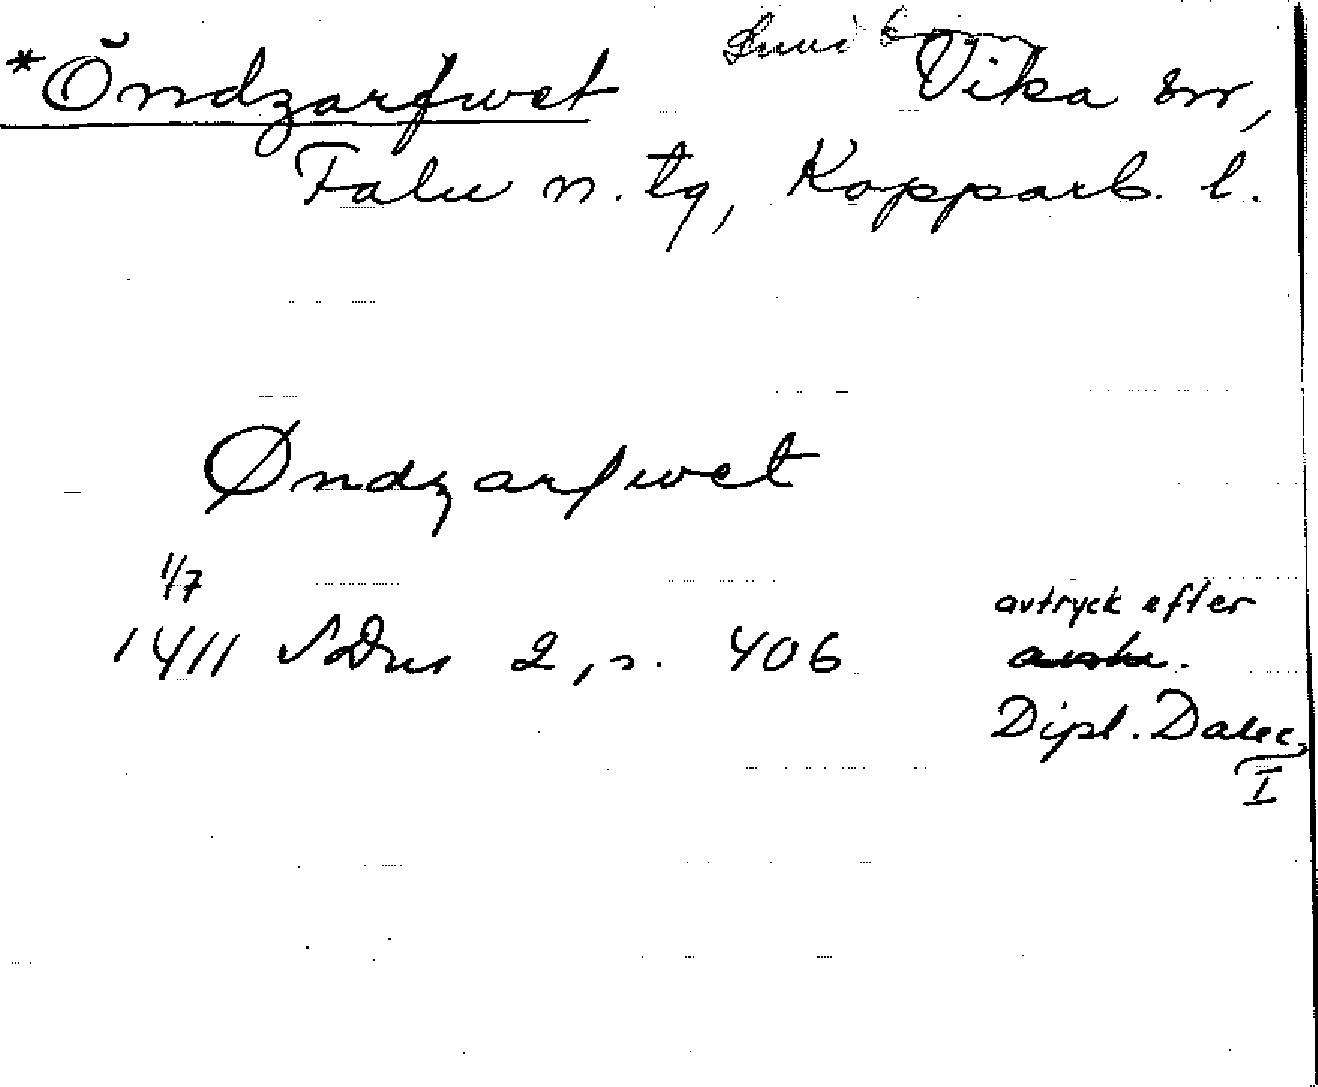 *Öndzarfwet Vika sn,
Falu n. tg, Kopparb. l.
Øndzarfwet
1/7
1411 SDns 2, s. 406
avtryck efter
Dipl. Dalec.
I